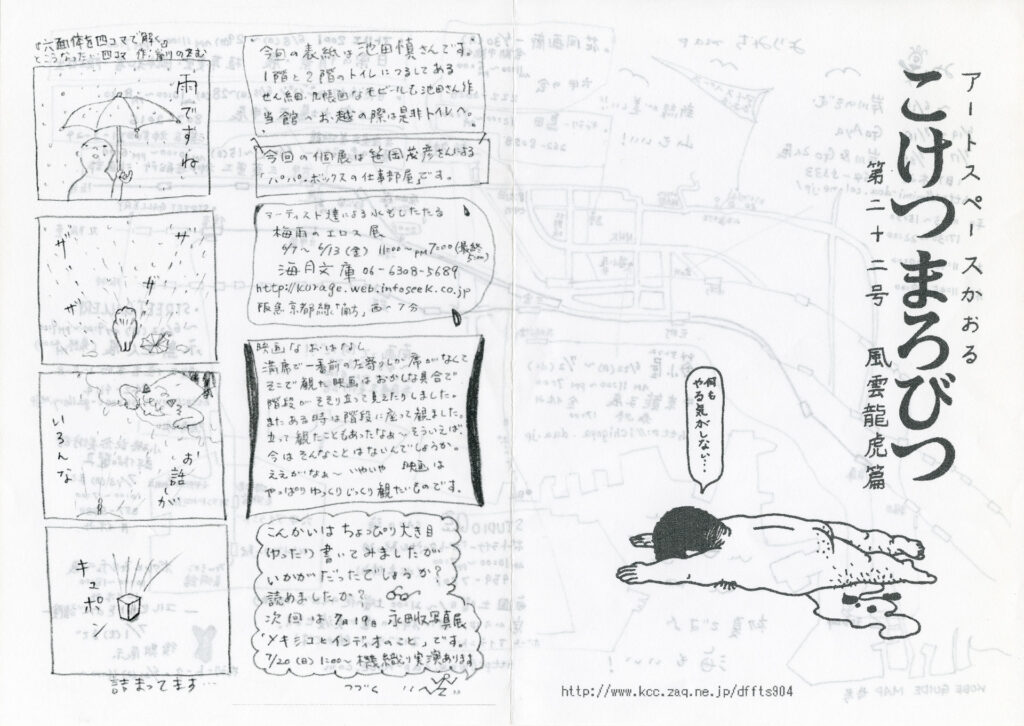 アートスペースかおる
こけつまろびつ
第二十二号　風雲龍虎篇
何も
やる気がしない…
http://www.kcc.zaq.ne.jp/dffts904
今回の表紙は池田慎さんです。
1階と2階のトイレにつるしてある
当館へお越の際は是非トイレへ。
今回の個展は笹岡茂彦さんによる
パパ・ボックスの仕事部屋です。
アーティスト達による水もしたたる
梅雨のエロス展
6/7～6/13(金) 11:00～pm7:00(最終5:00)
海月文庫 06-6308-5689
http://kurage.web.infoseek.co.jp
映画なおはなし
満席で一番前の左寄りしか席がなくて
そこで観た映画はおかしな具合で
階段がそそり立って見えたりしました。
またある時は階段に座って観ました。
立って観たこともあったなぁ～そういえば。
今はそんなことはないんでしょうか。
ええがなぁ～いやいや 映画は
やっぱりゆっくりじっくり観たいものです。
こんかいはちょっぴり大き目
ゆったり書いてみましたが
いかがだったでしょうか？
読めましたか？
次回は7月19日 永田収写真展
「メキシコとインディオのこと」です。
7/20(日)1:00～機織り実演あります
つづく
『六面体を四コマで解く』
雨ですね
ザ ザ
ザ ザ
お話しが
いろんな
キュポン
詰まってます…